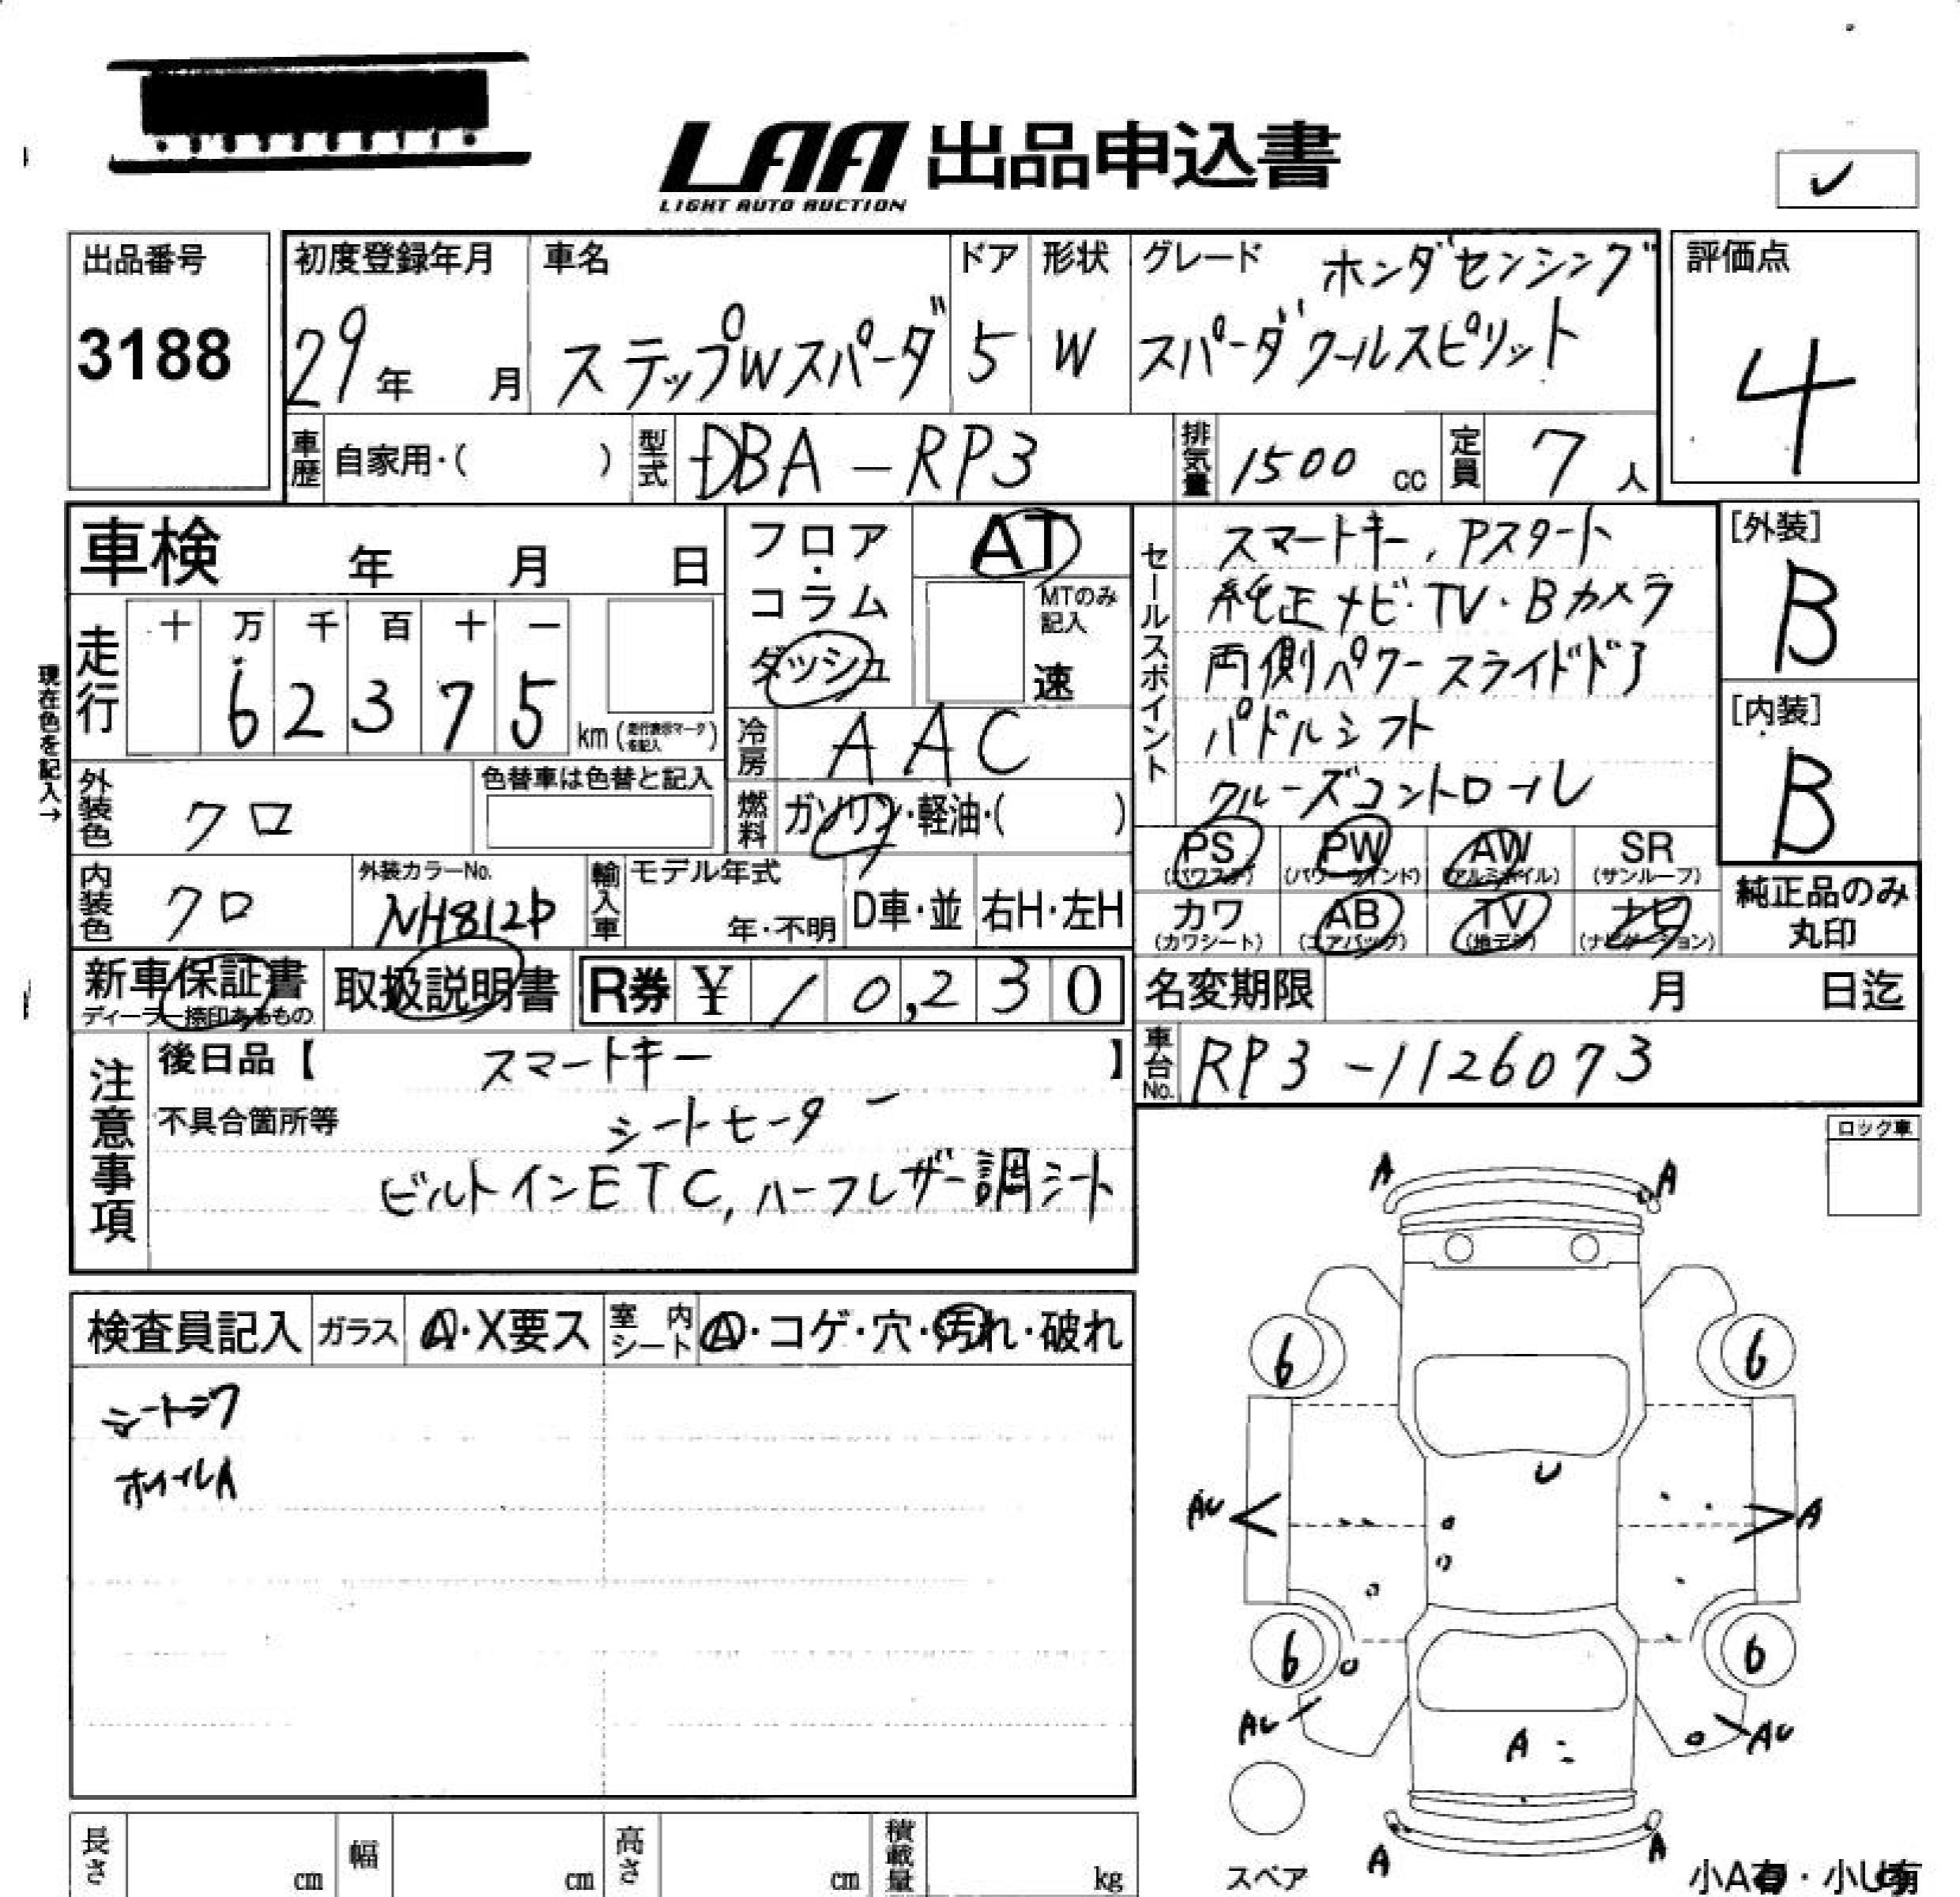 LAA 出品申込書
LIGHT AUTO AUCTION
出品番号
3188
初度登録年月
29年 月
車名
ステップWスパーダ
ドア
5
形状
W
グレード ホンダセンシング
スパーダクールスピリット
評価点
4
車歴 自家用・( )
型式 DBA-RP3
排気量 1500 cc
定員 7 人
車検 年 月 日
フロア・コラム ダッシュ
AT
MTのみ記入
速
セールスポイント
スマートキー, Pスタート
純正ナビ・TV・Bカメラ
両側パワースライドドア
パドルシフト
クルーズコントロール
[外装]
B
[内装]
B
現在色を記入→
走行
十 万 千 百 十 一
6 2 3 7 5 km (走行表示マークを記入)
冷房 AAC
燃料 ガソリン・軽油・( )
外装色 クロ
色替車は色替と記入
内装色 クロ
外装カラーNo.
NH812P
輸入車
モデル年式
年・不明
D車・並
右H・左H
PS (パワステ)
PW (パワーウインド)
AW (アルミホイル)
SR (サンルーフ)
カワ (カワシート)
AB (エアバッグ)
TV (地デジ)
ナビ (ナビゲーション)
純正品のみ
丸印
新車保証書
ディーラー捺印あるもの
取扱説明書
R券 ¥ 10,230
名変期限 月 日迄
車台No. RP3-1126073
注意事項
後日品【 スマートキー 】
不具合箇所等 シートヒーター
ビルトインETC, ハーフレザー調シート
ロック車
検査員記入
ガラス A・X要ス
室内シート A・コゲ・穴・汚れ・破れ
シートシワ
ホイルA
A A
6 6
U
AU A
6 6
AU A AU
A A
スペア
小A有・小U有
長さ cm
幅 cm
高さ cm
積載量 kg